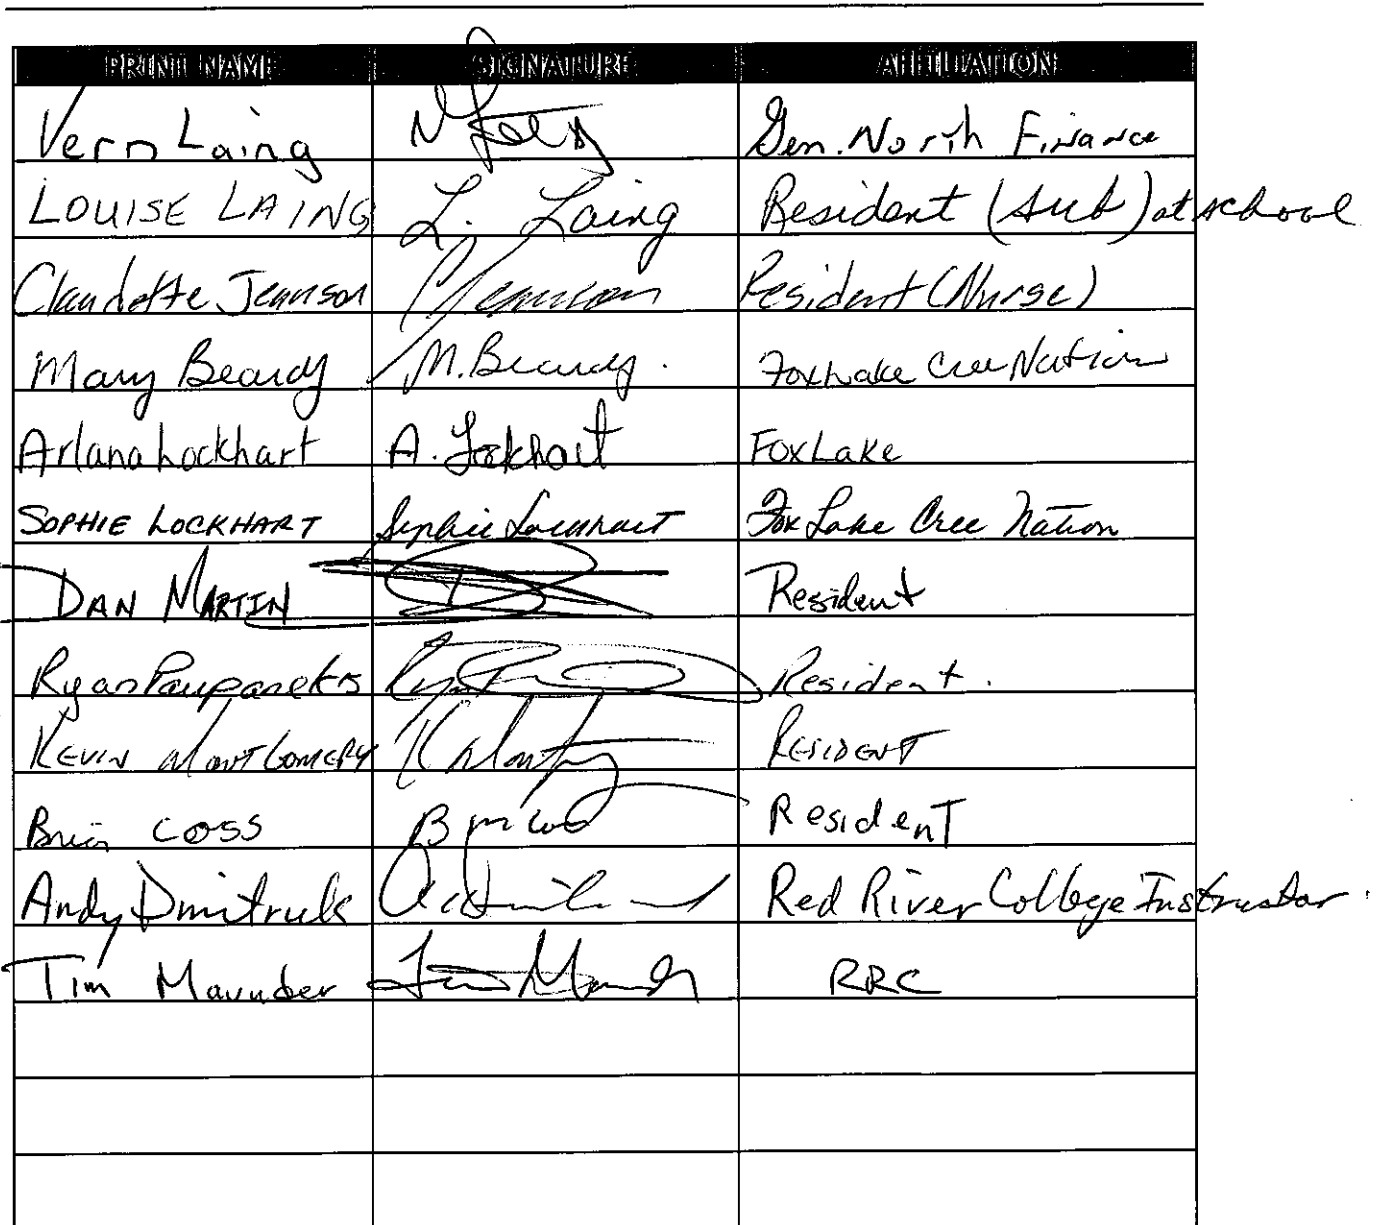 PRINT NAME SIGNATURE AFFILIATION
Vern Laing Gen. North Finance
LOUISE LAING L. Laing Resident (sub) at school
Claudette Jeanson Resident (Nurse)
Mary Beardy M. Beardy. Fox Lake Cree Nation
Arlana Lockhart A. Lockhart Fox Lake
SOPHIE LOCKHART Sophie Lockhart Fox Lake Cree Nation
DAN MARTIN Resident
Ryan Resident.
KEVIN MONTGOMERY RESIDENT
Brian COSS Resident
Andy Dmitruk Red River College Instructor.
Tim RRC